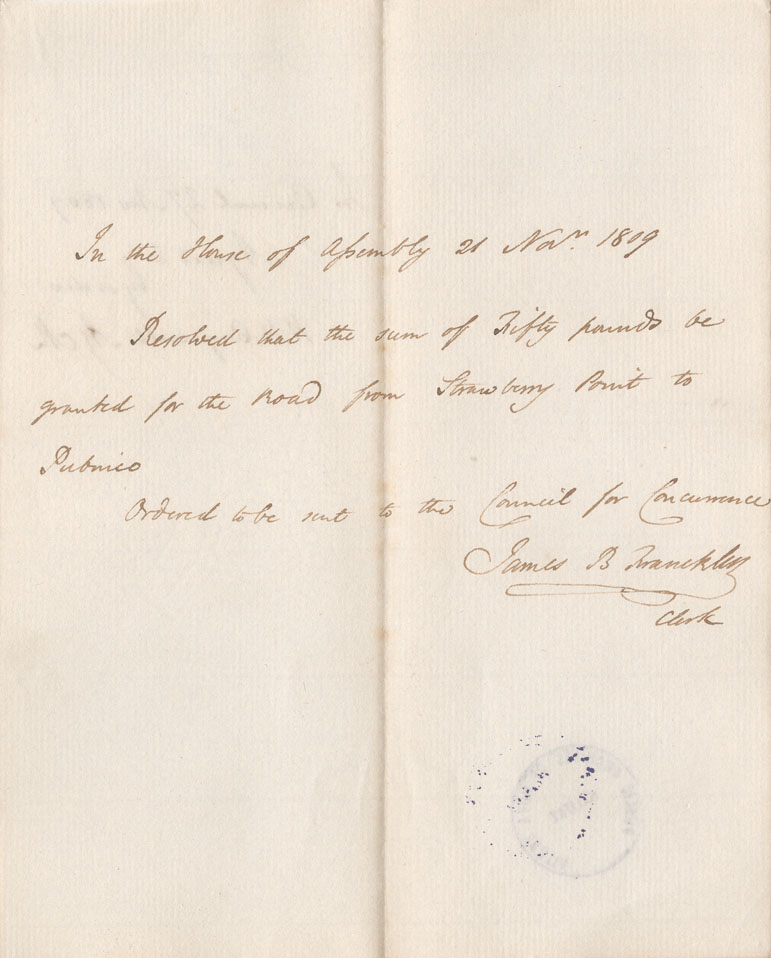 In the House of Assembly 21 Novr. 1809
Resolved that the sum of Fifty pounds be
granted for the Road from Strawberry Point to
Pubnico
Ordered to be sent to the Council for Concurrence
James B Francklin
Clerk